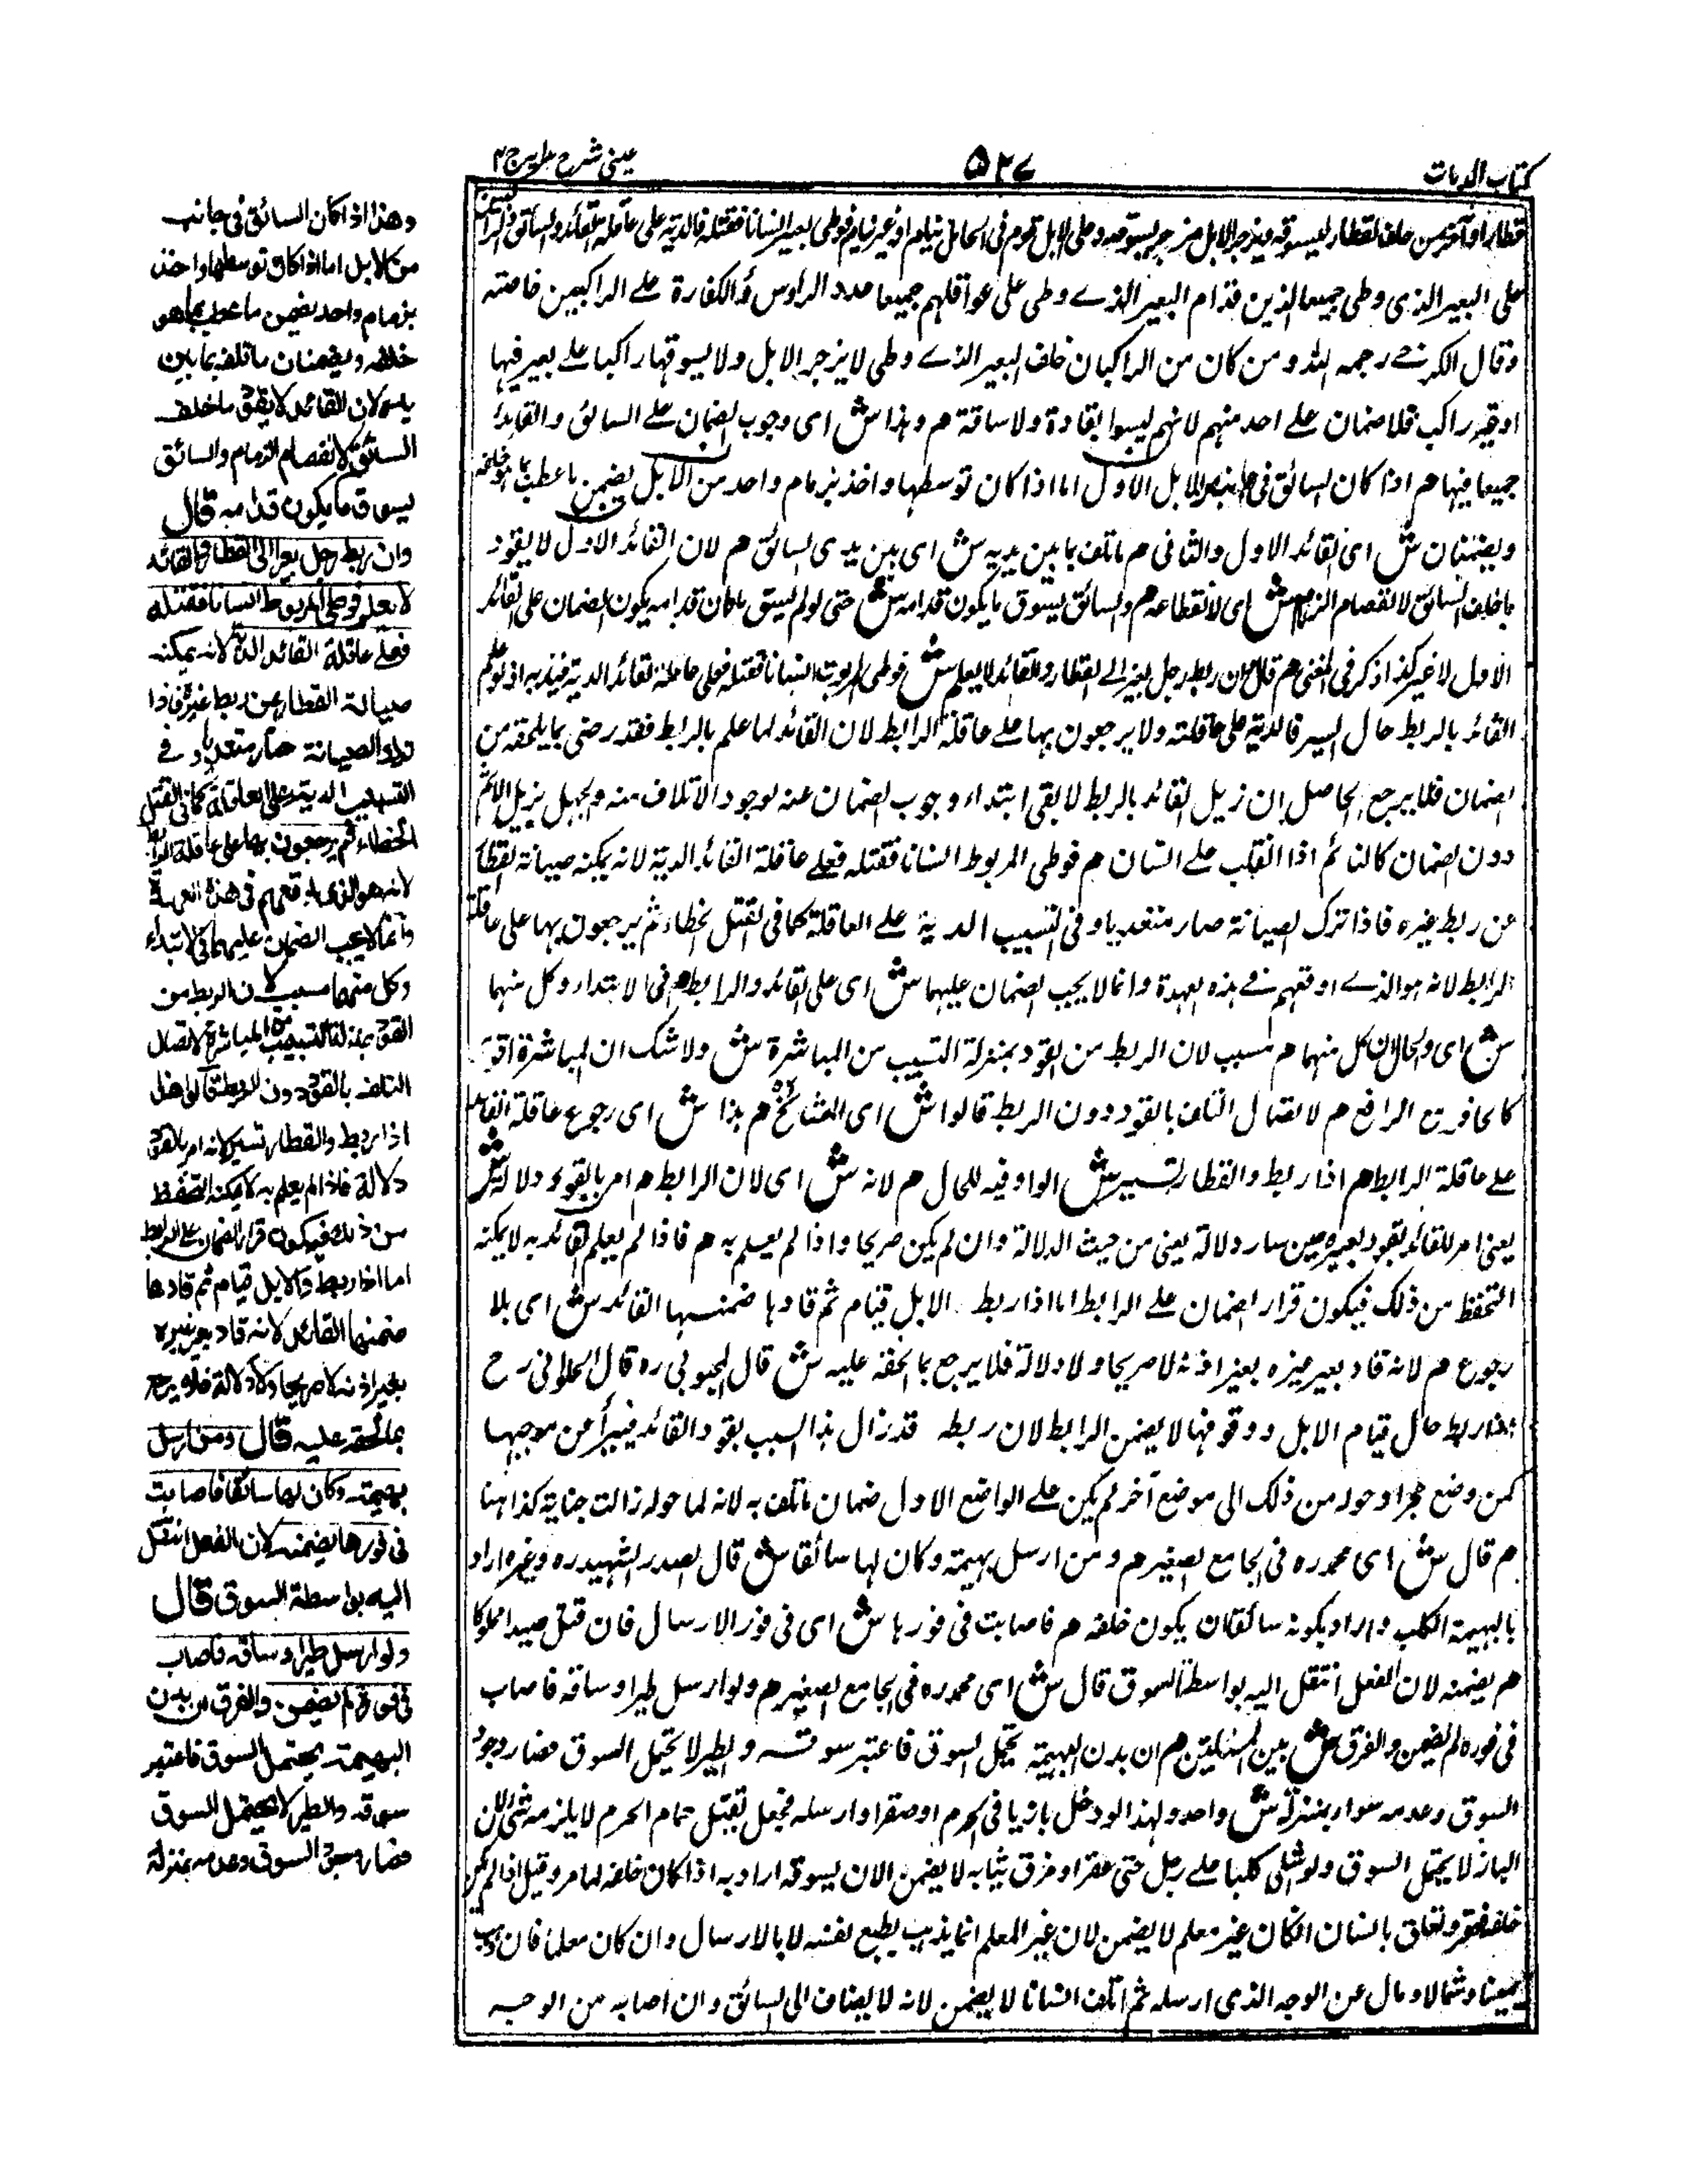 كتاب الديات
٥٢٧
عينى شرح هداية ج ٤
قطارا وآخر من خلف القطار ليسوقه ويزجر الابل فينزجر بسوقه وعلى الابل قوم في المحامل نيام او غير نيام فوطى بعير انسانا فقتله فالدية على عاقلة القائد والسائق والراكبين
على البعير الذى وطى جميعا الذين قدام البعير الذے وطى على عواقلهم جميعا عدد الرؤس والكفارة علے الراكبين خاصته
وقال الكرخے رحمه الله ومن كان من الراكبان خلف البعير الذے وطى لا يزجر الابل ولا يسوقها راكبا علے بعير فيها
او غير راكب فلا ضمان علے احد منهم لانهم ليسوا بقادة ولا ساقة هم وهذا ش اى وجوب الضمان علے السائق والقائد
جميعا فيها هم اذا كان السائق فى جانب من الابل الاول اما اذا كان توسطها واخذ بزمام واحد من الابل يضمن ما عطب بما هو خلفه
ويضمنان ش اى القائد الاول والثانى هم ما تلف بما بين يديه ش اى بين يدى السائق هم لان القائد الاول لا يقود
ما خلف السائق لانفصام الزمام ش اى لانقطاعه هم والسائق يسوق ما يكون قدامه ش حتى لو لم يسق ما كان قدامه يكون الضمان على القائد
الاول لا غير كذا ذكر فى المغنى هم قال وان ربط رجل بعيرا الے القطار والقائد لا يعلم ش فوطى المربوط انسانا فقتله فعلى عاقلة القائد الدية قيد به اذ لو علم
القائد بالربط حال السير فالدية على عاقلته ولا يرجعون بها علے عاقلة الرابط لان القائد لما علم بالرابط فقد رضى بما يلحقه من
الضمان فلا يرجع الحاصل ان زيل القائد بالربط لا بقى ابتداء وجوب الضمان عنه لوجود الاتلاف منه والجهل يزيل الاثم
دون الضمان كالنائم اذا انقلب علے انسان هم فوطى المربوط انسانا فقتله فعلے عاقلة القائد الدية لانه يمكنه صيانة القطار
عن ربط غيره فاذا ترك الصيانة صار متعديا وفى التسبيب الدية علے العاقلة كما فى القتل الخطاء ثم يرجعون بها على عاقلة
الرابط لانه هو الذے اوقعهم فے هذه العهدة وانما لا يجب الضمان عليهما ش اى على القائد والرابط هم فى الابتداء وكل منهما
ش اى والحال ان كل منهما هم مسبب لان الربط من القود بمنزلة التسبيب من المباشرة ش ولا شك ان المباشرة اقوى
كالحافر مع الرافع هم لاتصال التلف بالقود دون الربط قالوا ش اى المشائخ هم هذا ش اى رجوع عاقلة القائد
علے عاقلة الرابط هم اذا ربط والقطار تسير ش الواو فيه للحال هم لانه ش اى لان الرابط هم امر بالقود دلالة ش
يعنى امر للقائد بقود بعيره حين سار دلالة يعنى من حيث الدلالة وان لم يكن صريحا واذا لم يعلم به هم فاذا لم يعلم القائد به لا يمكنه
التحفظ من ذلك فيكون قرار الضمان علے الرابط اما اذا ربط الابل قيام ثم قادها ضمنها القائد ش اى بلا
رجوع هم لانه قاد بعير غيره بغير اذنه لا صريحا ولا دلالة فلا يرجع بما لحقه عليه ش قال المحبوبى ره قال الحلوانى رح
هذا ربط حال قيام الابل ووقوفها لا يضمن الرابط لان ربطه قد زال بذا السبب بقود القائد فيبرأ عن موجبها
كمن وضع حجرا وحوله من ذلك الى موضع آخر لم يكن علے الواضع الاول ضمان ما تلف به لانه لما حوله زالت جناية كذا هنا
هم قال ش اى محمد ره فى الجامع الصغير هم ومن ارسل بهيمة وكان لها سائقا ش قال الصدر الشهيد ره وغيره اراد
بالبهيمة الكلب واراد بكونه سائقا ان يكون خلفه هم فاصابت فى فورها ش اى فى فور الارسال فان قتل صيدا مملوكا
هم يضمنه لان الفعل انتقل اليه بواسطة السوق قال ش اى محمد ره فى الجامع الصغير هم ولو ارسل طيرا وساقه فاصاب
فى فوره لم يضمن والفرق ش بين المسئلتين هم ان بدن البهيمة يحتمل السوق فاعتبر سوقه والطير لا يحتمل السوق فصار وجود
السوق وعدمه سواء بمنزلة ش واحد ولهذا لو دخل بازيا فى الحرم او صقرا وارسله فجعل تقتل حمام الحرم لا يلزمه شئ لان
الباز لا يحتمل السوق ولو اشلى كلبا علے رجل حتى عقر او مزق ثيابه لا يضمن الا ان يسوقه اراد به اذا كان خلفه لما مر وقيل اذا لم يكن
خلفه فعقر وتعلق بانسان ان كان غير معلم لا يضمن لان غير المعلم انما يذهب بطبع نفسه لا بالارسال وان كان معلما فان ذهب
يمينا وشمالا ومال عن الوجه الذى ارسله ثم اتلف انسانا لا يضمن لانه لا يضاف الى السائق وان اصابه من الوجه
وهذا اذا كان السائق فى جانب
من الابل اما اذا كان توسطها واخذ
بزمام واحد يضمن ما عطب بما هو
خلفه ويضمنان ما تلف بما بين
يديه لان القائد لا يقود ما خلف
السائق لانفصام الزمام والسائق
يسوق ما يكون قدامه قال
وان ربط رجل بعيرا الى القطار والقائد
لا يعلم فوطى المربوط انسانا فقتله
فعلے عاقلة القائد الدية لانه يمكنه
صيانة القطار عن ربط غيره فاذا
ترك الصيانة صار متعديا وفى
التسبيب الدية على العاقلة كما فى القتل
الخطاء ثم يرجعون بها على عاقلة الرابط
لانه هو الذى اوقعهم فى هذه العهدة
وانما لا يجب الضمان عليهما فى الابتداء
وكل منهما مسبب لان الربط من
القود بمنزلة التسبيب من المباشرة لاتصال
التلف بالقود دون الربط قالوا هذا
اذا ربط والقطار تسير لانه امر بالقود
دلالة فاذا لم يعلم به لا يمكنه التحفظ
من ذلك فيكون قرار الضمان على الرابط
اما اذا ربط والابل قيام ثم قادها
ضمنها القائد لانه قاد بعير غيره
بغير اذنه لا صريحا ولا دلالة فلا يرجع
بما لحقه عليه قال ومن ارسل
بهيمة وكان لها سائقا فاصابت
فى فورها يضمنه لان الفعل انتقل
اليه بواسطة السوق قال
ولو ارسل طيرا وساقه فاصاب
فى فوره لم يضمن والفرق ان بدن
البهيمة يحتمل السوق فاعتبر
سوقه والطير لا يحتمل السوق
فصار وجود السوق وعدمه بمنزلة